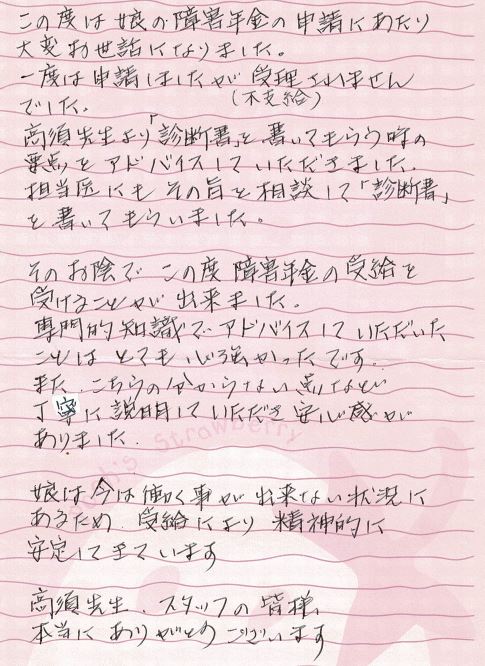 この度は娘の障害年金の申請にあたり
大変お世話になりました。
一度は申請しましたが受理されません
でした。 (不支給)
高須先生より「診断書」を書いてもらう時の
要点をアドバイスしていただきました。
担当医にもその旨を相談して「診断書」
を書いてもらいました。
そのお陰でこの度障害年金の受給を
受けることが出来ました。
専門的知識でアドバイスしていただいた
ことはとても心強かったです。
また、こちらの分からない点など
丁寧に説明していただき安心感が
ありました。
Strawberry
娘は今は働く事が出来ない状況に
あるため、受給により精神的に
安定して来ています
高須先生、スタッフの皆様、
本当にありがとうございます